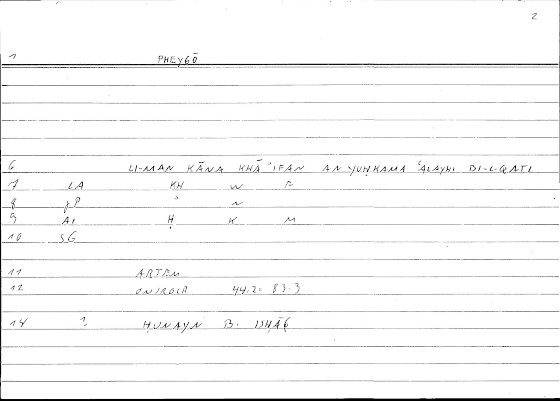 2
1 PHEYGŌ
6 LI-MAN KĀNA KHĀ'IFAN AN YUḤKAMA 'ALAYHI BI-L-QATL
7 LA KH W F
8 gP ' N
9 AI Ḥ K M
10 SG
11 ARTEM
12 ONIROCR 44.2. 83.3
14 ? ḤUNAYN B. ISḤĀQ